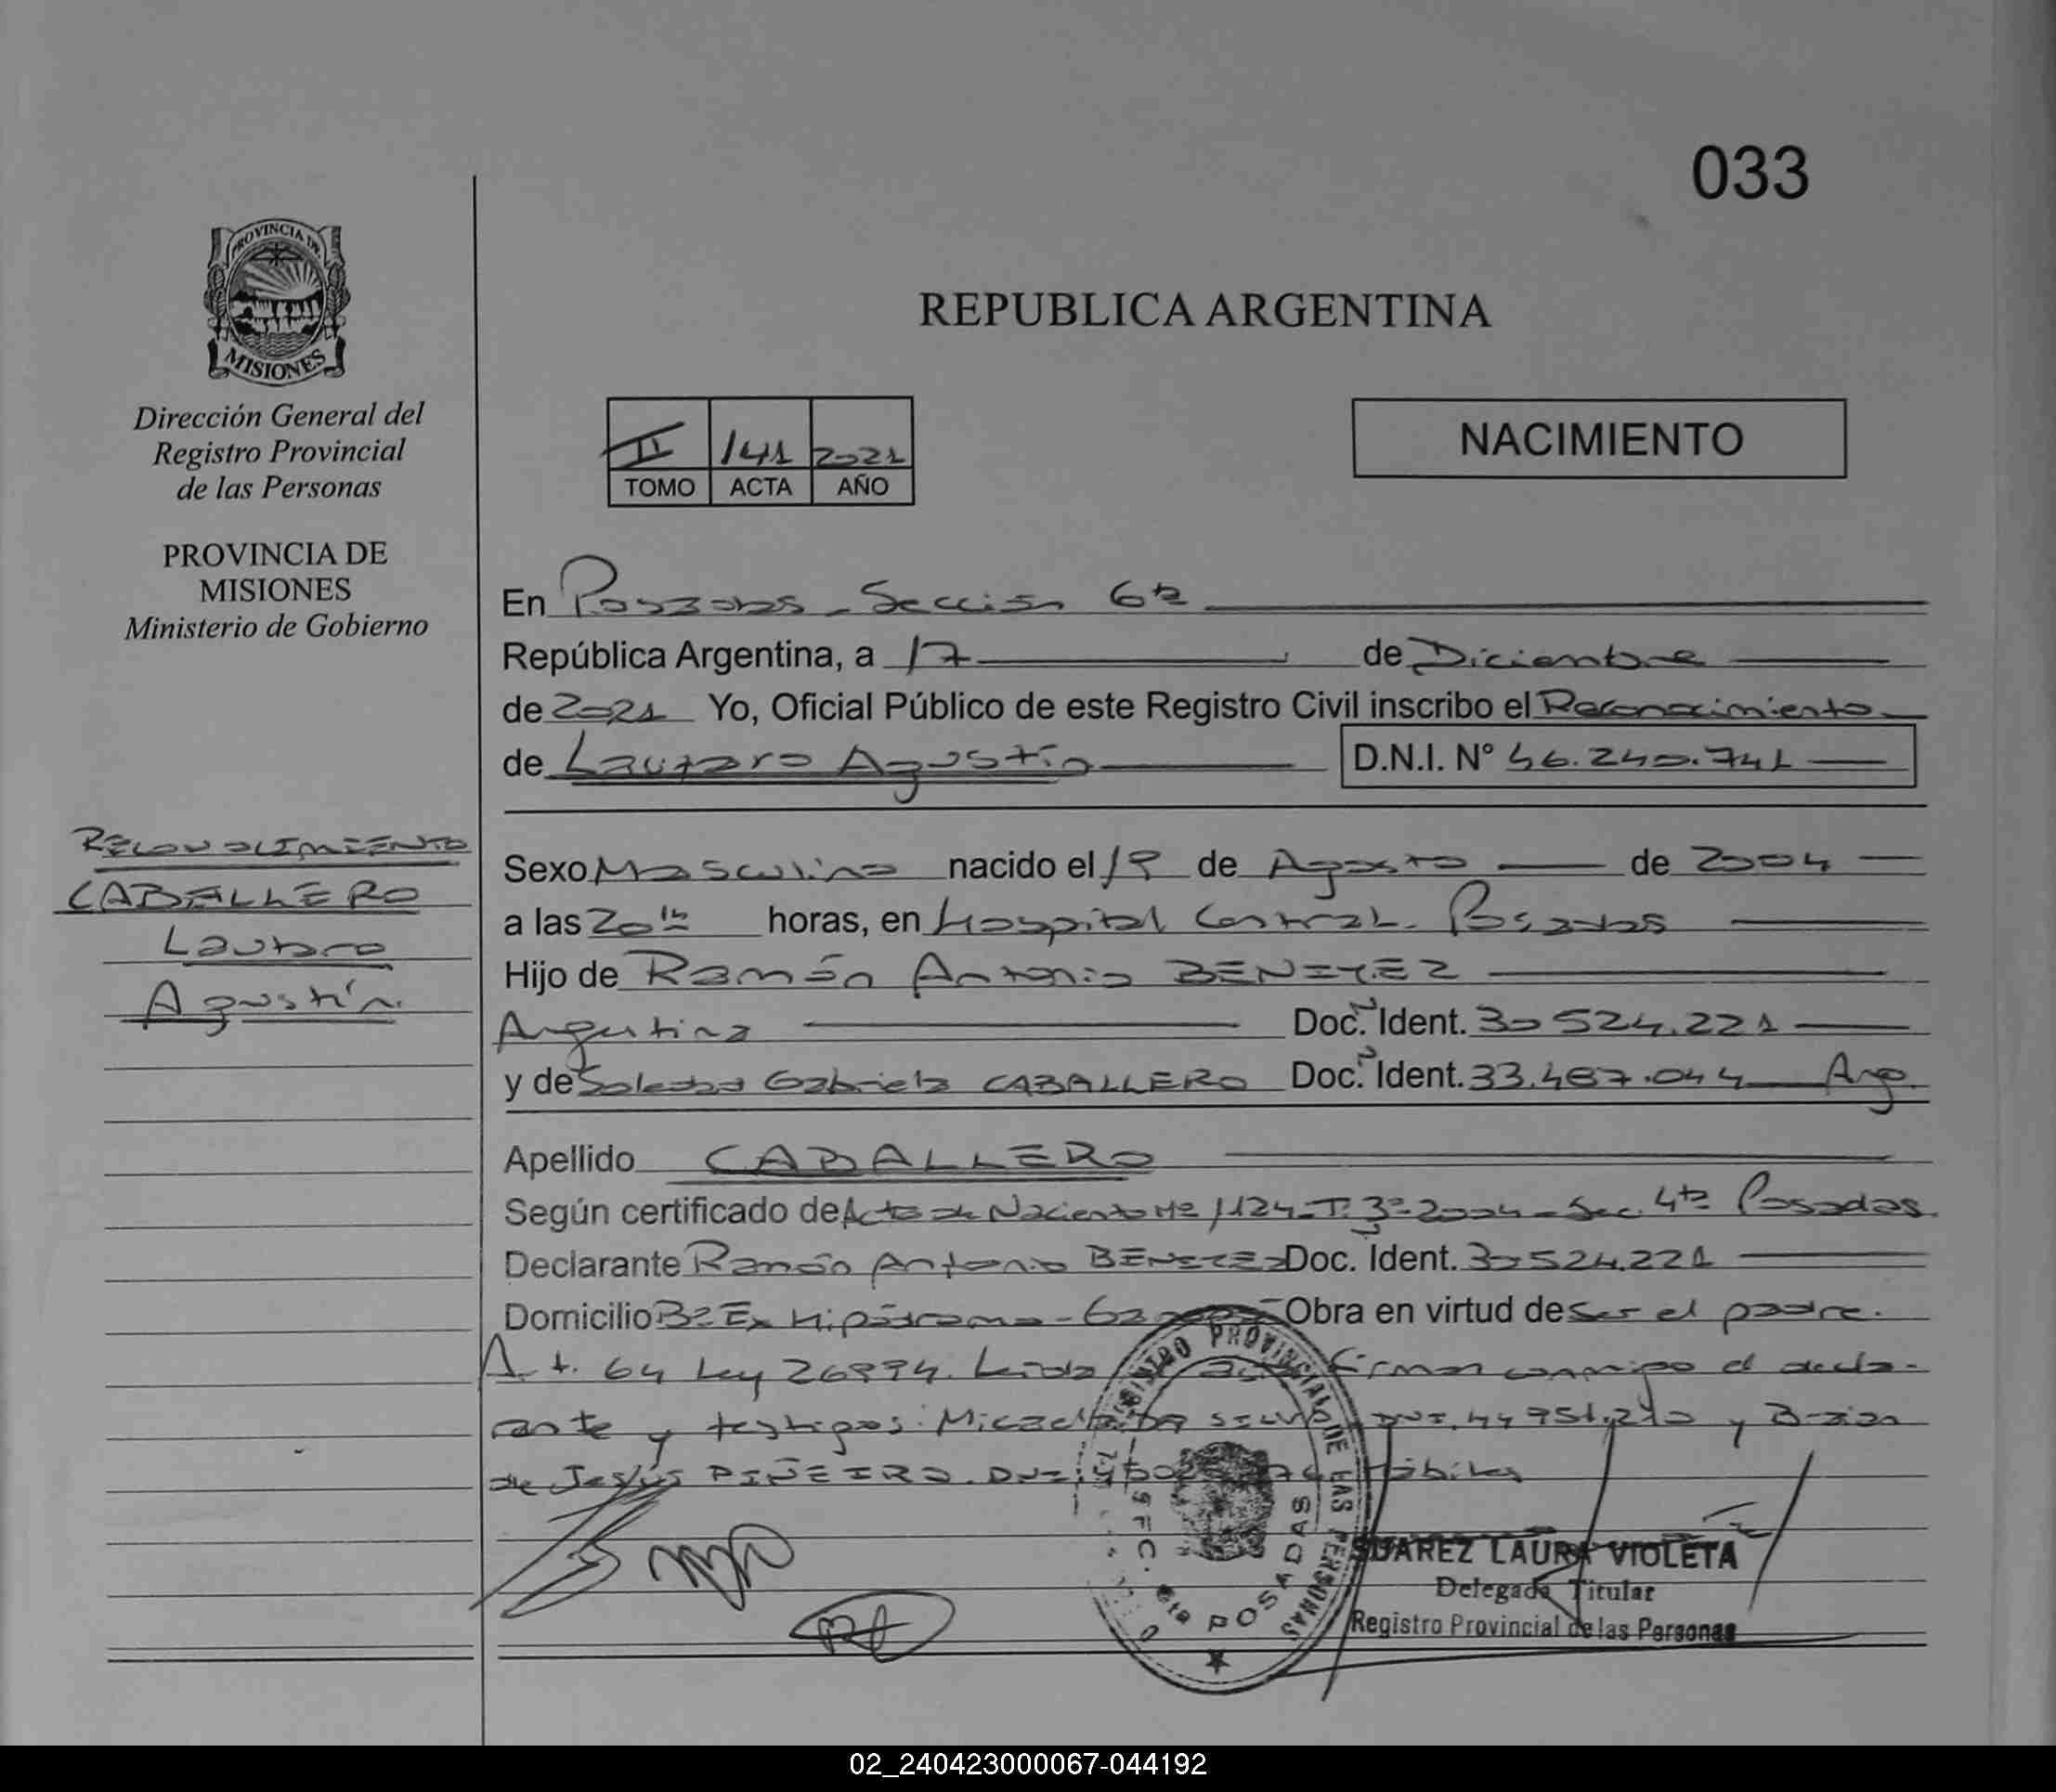 033
PROVINCIA DE
MISIONES
Dirección General del
Registro Provincial
de las Personas
PROVINCIA DE
MISIONES
Ministerio de Gobierno
RECONOCIMIENTO
CABALLERO
Lautaro
Agustín.
REPUBLICA ARGENTINA
II 141 2021
TOMO ACTA AÑO
NACIMIENTO
En Posadas - Sección 6ta
República Argentina, a 17 de Diciembre
de 2021 Yo, Oficial Público de este Registro Civil inscribo el Reconocimiento
de Lautaro Agustín D.N.I. Nº 46.240.741
Sexo Masculino nacido el 19 de Agosto de 2004
a las 20 horas, en Hospital Central. Posadas
Hijo de Ramón Antonio BENITEZ
Argentina Doc. Ident. 30524.221
y de Soledad Gabriela CABALLERO Doc. Ident. 33.487.044 Arg.
Apellido CABALLERO
Según certificado de Acta de Naciento Nº 1124-T. 3º-2004-Sec. 4ta Posadas.
Declarante Ramón Antonio BENITEZ Doc. Ident. 30524.221
Domicilio Bº Ex Hipódromo - Obra en virtud de ser el padre.
Art. 64 Ley 26994. Leída firman conmigo el decla-
rante y testigos: Micaela DNI. y Brian
de Jesús PIÑEIRO. DNI: hábiles
REGISTRO PROVINCIAL DE LAS PERSONAS
OFIC. 6ta POSADAS
SUAREZ LAURA VIOLETA
Delegada Titular
Registro Provincial de las Personas
02_240423000067-044192